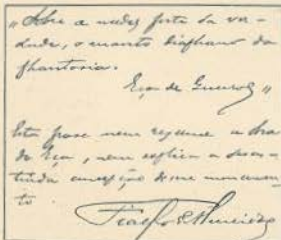 "Sobre a nudez forte da ver-
dade, o manto diaphano da
phantasia.
Eça de Queiroz"
Esta frase nem resume a obra
do Eça, nem explica a
concepção d'esse monumen-
to
Fialho d'Almeida